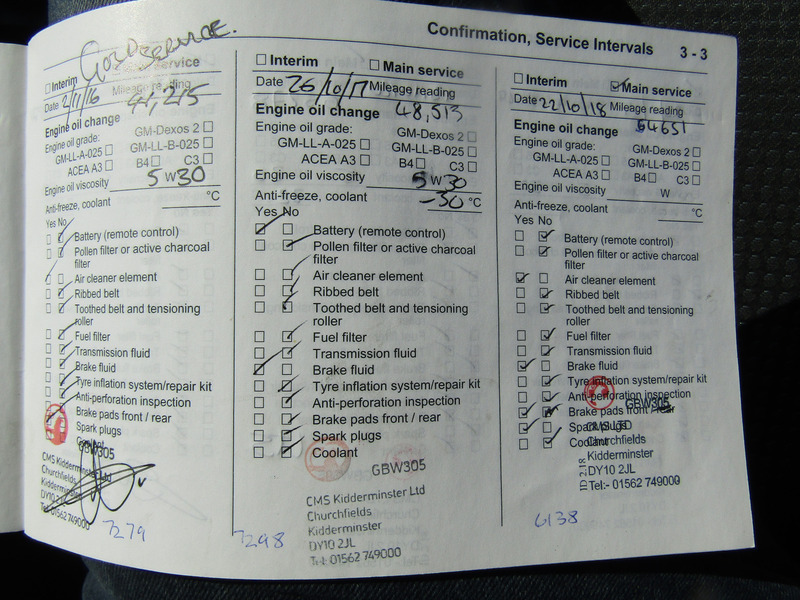 Confirmation, Service Intervals 3 - 3
SERVICE.
Interim Main service
Date 2/11/16 Mileage reading
44,215
Engine oil change
Engine oil grade: GM-Dexos 2
GM-LL-A-025 GM-LL-B-025
ACEA A3 B4 C3
Engine oil viscosity 5 W 30
Anti-freeze, coolant °C
Yes No
Battery (remote control)
Pollen filter or active charcoal
filter
Air cleaner element
Ribbed belt
Toothed belt and tensioning
roller
Fuel filter
Transmission fluid
Brake fluid
Tyre inflation system/repair kit
Anti-perforation inspection
Brake pads front / rear
Spark plugs
Coolant
GBW305
CMS Kidderminster Ltd
Churchfields
Kidderminster
DY10 2JL
Tel:- 01562 749000
7279
Interim Main service
Date 26/10/17 Mileage reading
48,513
Engine oil change
Engine oil grade: GM-Dexos 2
GM-LL-A-025 GM-LL-B-025
ACEA A3 B4 C3
Engine oil viscosity 5 W 30
Anti-freeze, coolant -30 °C
Yes No
Battery (remote control)
Pollen filter or active charcoal
filter
Air cleaner element
Ribbed belt
Toothed belt and tensioning
roller
Fuel filter
Transmission fluid
Brake fluid
Tyre inflation system/repair kit
Anti-perforation inspection
Brake pads front / rear
Spark plugs
Coolant
GBW305
CMS Kidderminster Ltd
Churchfields
Kidderminster
DY10 2JL
Tel: 01562 749000
7298
Interim Main service
Date 22/10/18 Mileage reading
54651
Engine oil change
Engine oil grade: GM-Dexos 2
GM-LL-A-025 GM-LL-B-025
ACEA A3 B4 C3
Engine oil viscosity W
Anti-freeze, coolant °C
Yes No
Battery (remote control)
Pollen filter or active charcoal
filter
Air cleaner element
Ribbed belt
Toothed belt and tensioning
roller
Fuel filter
Transmission fluid
Brake fluid
Tyre inflation system/repair kit
Anti-perforation inspection
Brake pads front / rear
Spark plugs
Coolant
GBW305
CMS LTD
Churchfields
Kidderminster
DY10 2JL
Tel:- 01562 749000
6138